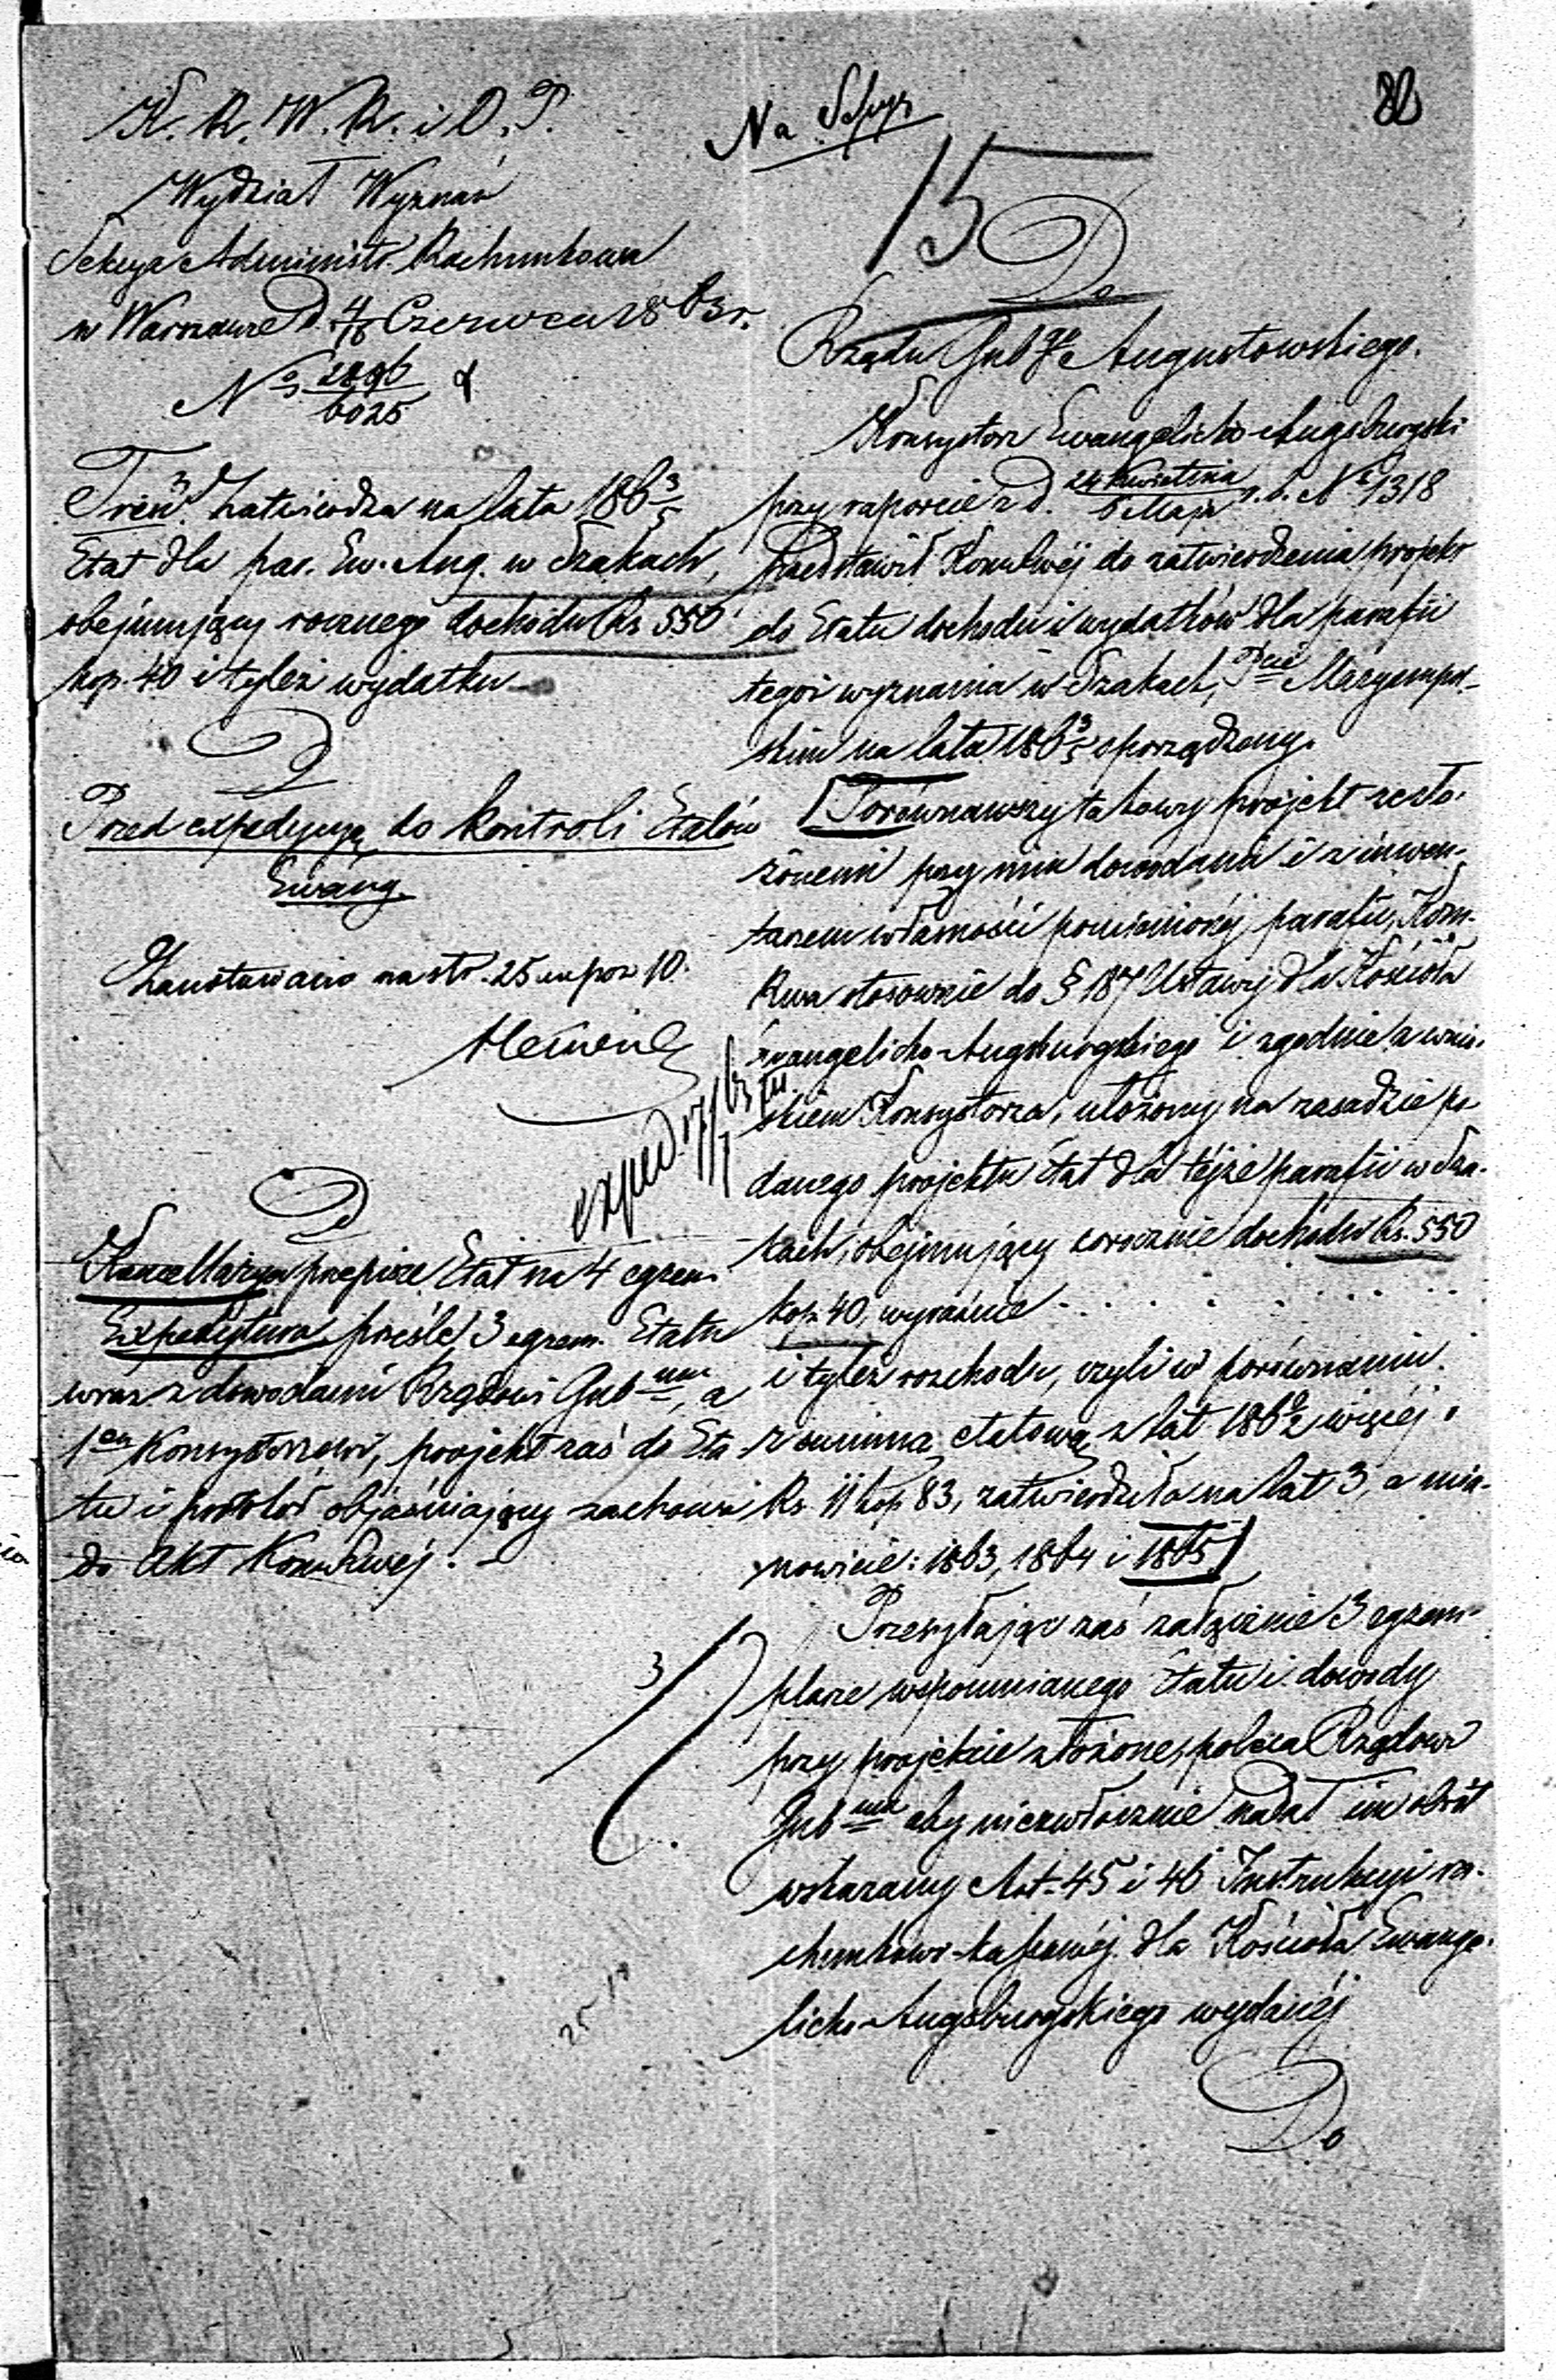 K. R. W. R. i O. P.
Wydział Wyznań
Sekcya Administr. Rachunkowa
w Warszawie d. 4/16 Czerwca 1863 r.
No 2896/6025
Treść. Zatwierdza na lata 1863/5
Etat dla par. Ew. Aug. w Szakach,
obejmujący rocznego dochodu Rs 550
kop. 40 i tyleż wydatku
Przed expedycyą do Kontroli Etatów
Ewang.
Zanotowano na str. 25 na poz 10.
exped. 17/7 63
Kancellarya przepisze Etat na 4 egzem.
Expedytura prześle 3 egzem. Etatu
wraz z dowodami Rządowi Gub=mu, a
1en Konsystorzowi, projekt zaś do Eta
tu i protokół objaśniający zachowa
do Akt Kom. Rwej. -
3/
25 10
Na
82
15
Do
Rządu Gubgo Augustowskiego.
Konsystorz Ewangelicko-Augsburgski
przy raporcie z d. 24 Kwietnia/6 Maja r. b. No 1318
przedstawił Kom. Rwéj do zatwierdzenia projekt
do Etatu dochodu i wydatków dla parafii
tegoż wyznania w Szakach, Pcie Maryampol-
skim na lata 1863/5 sporządzony.
Porównawszy takowy projekt z zło-
żonemi przy nim dowodami i z inwen-
tarzem własności pomienionéj parafii, Kom.
Rwa stosownie do § 187 Ustawy dla Kościoła
Ewangelicko-Augsburgskiego i zgodnie z wnio-
skiem Konsystorza, ułożony na zasadzie po-
danego projektu Etat dla téjże parafii w Sza-
kach, obejmujący corocznie dochodu Rs. 550
kop. 40, wyraźnie . . . . . . . .
i tyleż rozchodu, czyli w porównaniu
z summą etatową z lat 1860/2 więcéj o
Rs. 11 kop 83, zatwierdziła na lat 3, a mia-
nowicie: 1863, 1864 i 1865
Przesyłając zaś załącznie 3 egzem-
plarze wspomnianego Etatu i dowody
przy projekcie złożone, poleca Rządowi
Gub=mu aby niezwłocznie nadał im obrót
wskazany Art. 45 i 46 Instrukcyi ra-
chunkowo-kassowéj dla Kościoła Ewange-
licko-Augsburgskiego wydanéj
Do